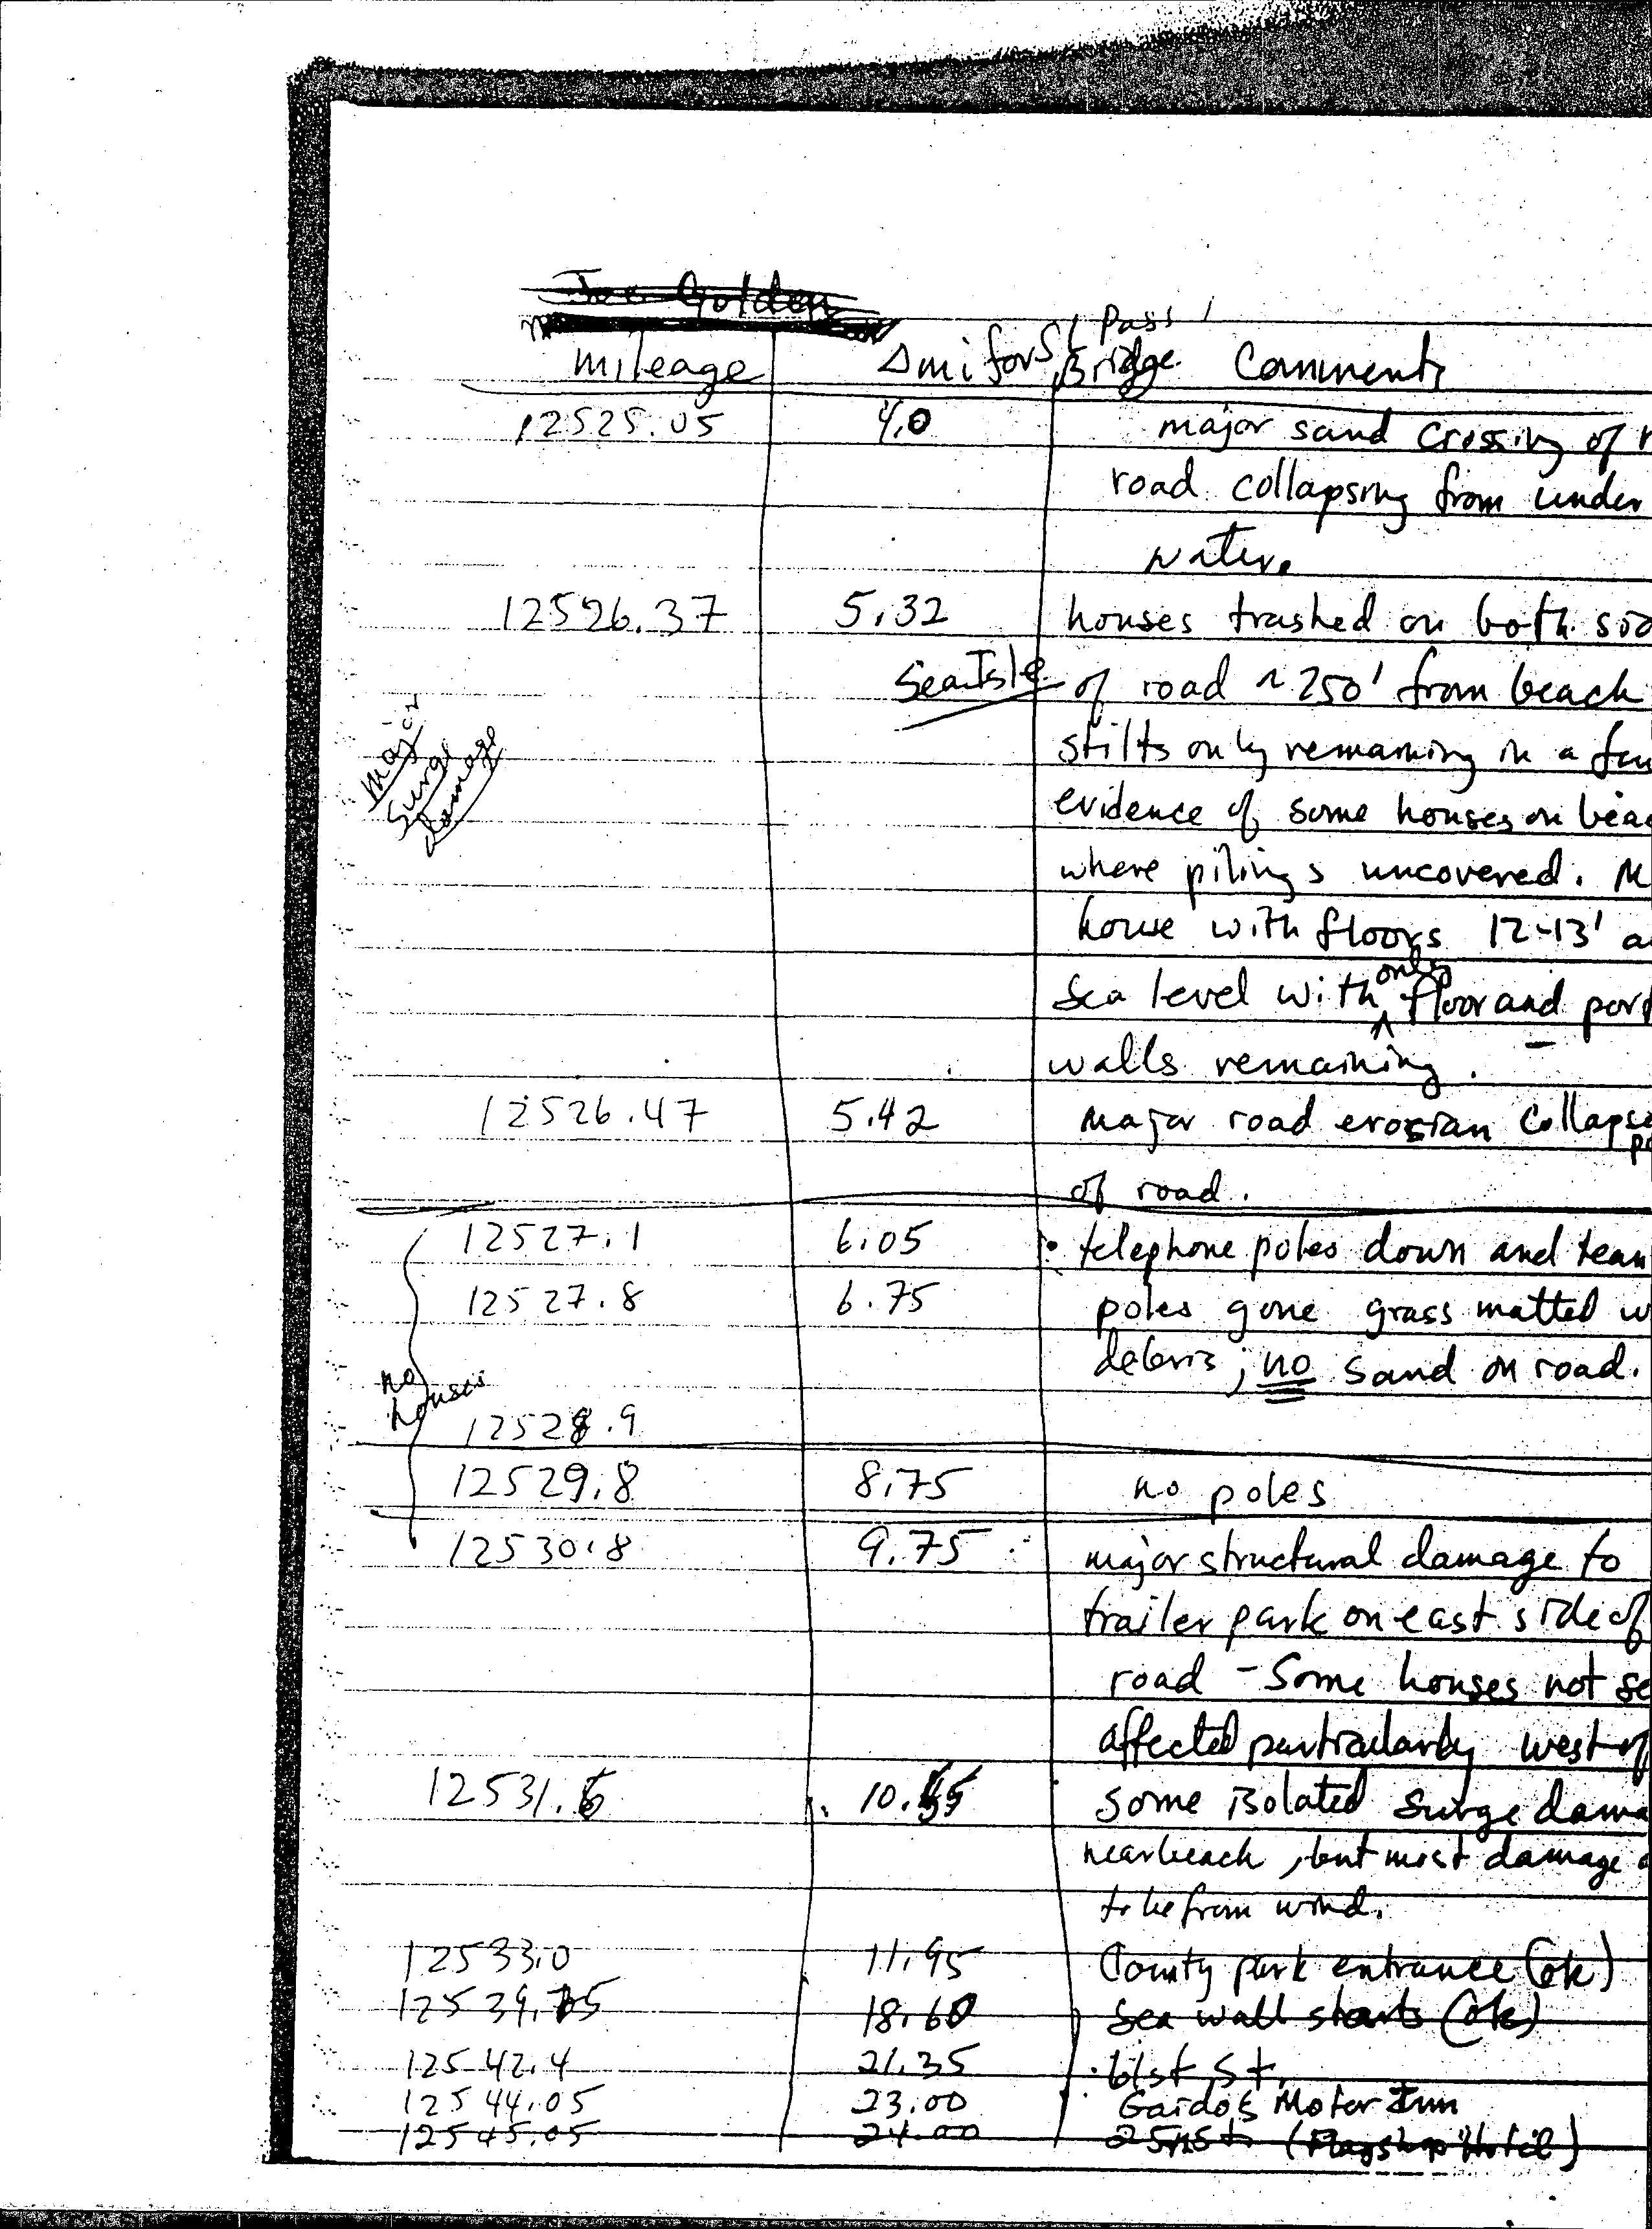 Joe Golden
St Pass
mileage Δmi for Bridge. Comments
12525.05 4.0 major sand crossing of r
road collapsing from under
water.
12526.37 5.32 houses trashed on both sid
Sea Isle of road ~ 250' from beach
major surge damage
stilts only remaining in a few
evidence of some houses on beac
where pilings uncovered. M
house with floors 12-13' a
only
Sea level with ^ floor and part
walls remaining.
12526.47 5.42 major road erosian collapse
of road.
12527.1 6.05 • telephone poles down and
12527.8 6.75 poles gone grass matted w
debris; no sand on road.
no houses
12528.9
12529.8 8.75 no poles
12530.8 9.75 major structural damage to
trailer park on east side of
road - Some houses not se
affected particularly west of
12531.6 10.55 some isolated surge dama
near beach, but most damage a
to be from wind.
12533.0 11.95 County park entrance (ok)
12539.65 18.60 Sea wall starts (ok)
12542.4 21.35 61st St.
12544.05 23.00 Gaido's Motor Inn
12545.05 24.00 25th St (Flagship Hotel)